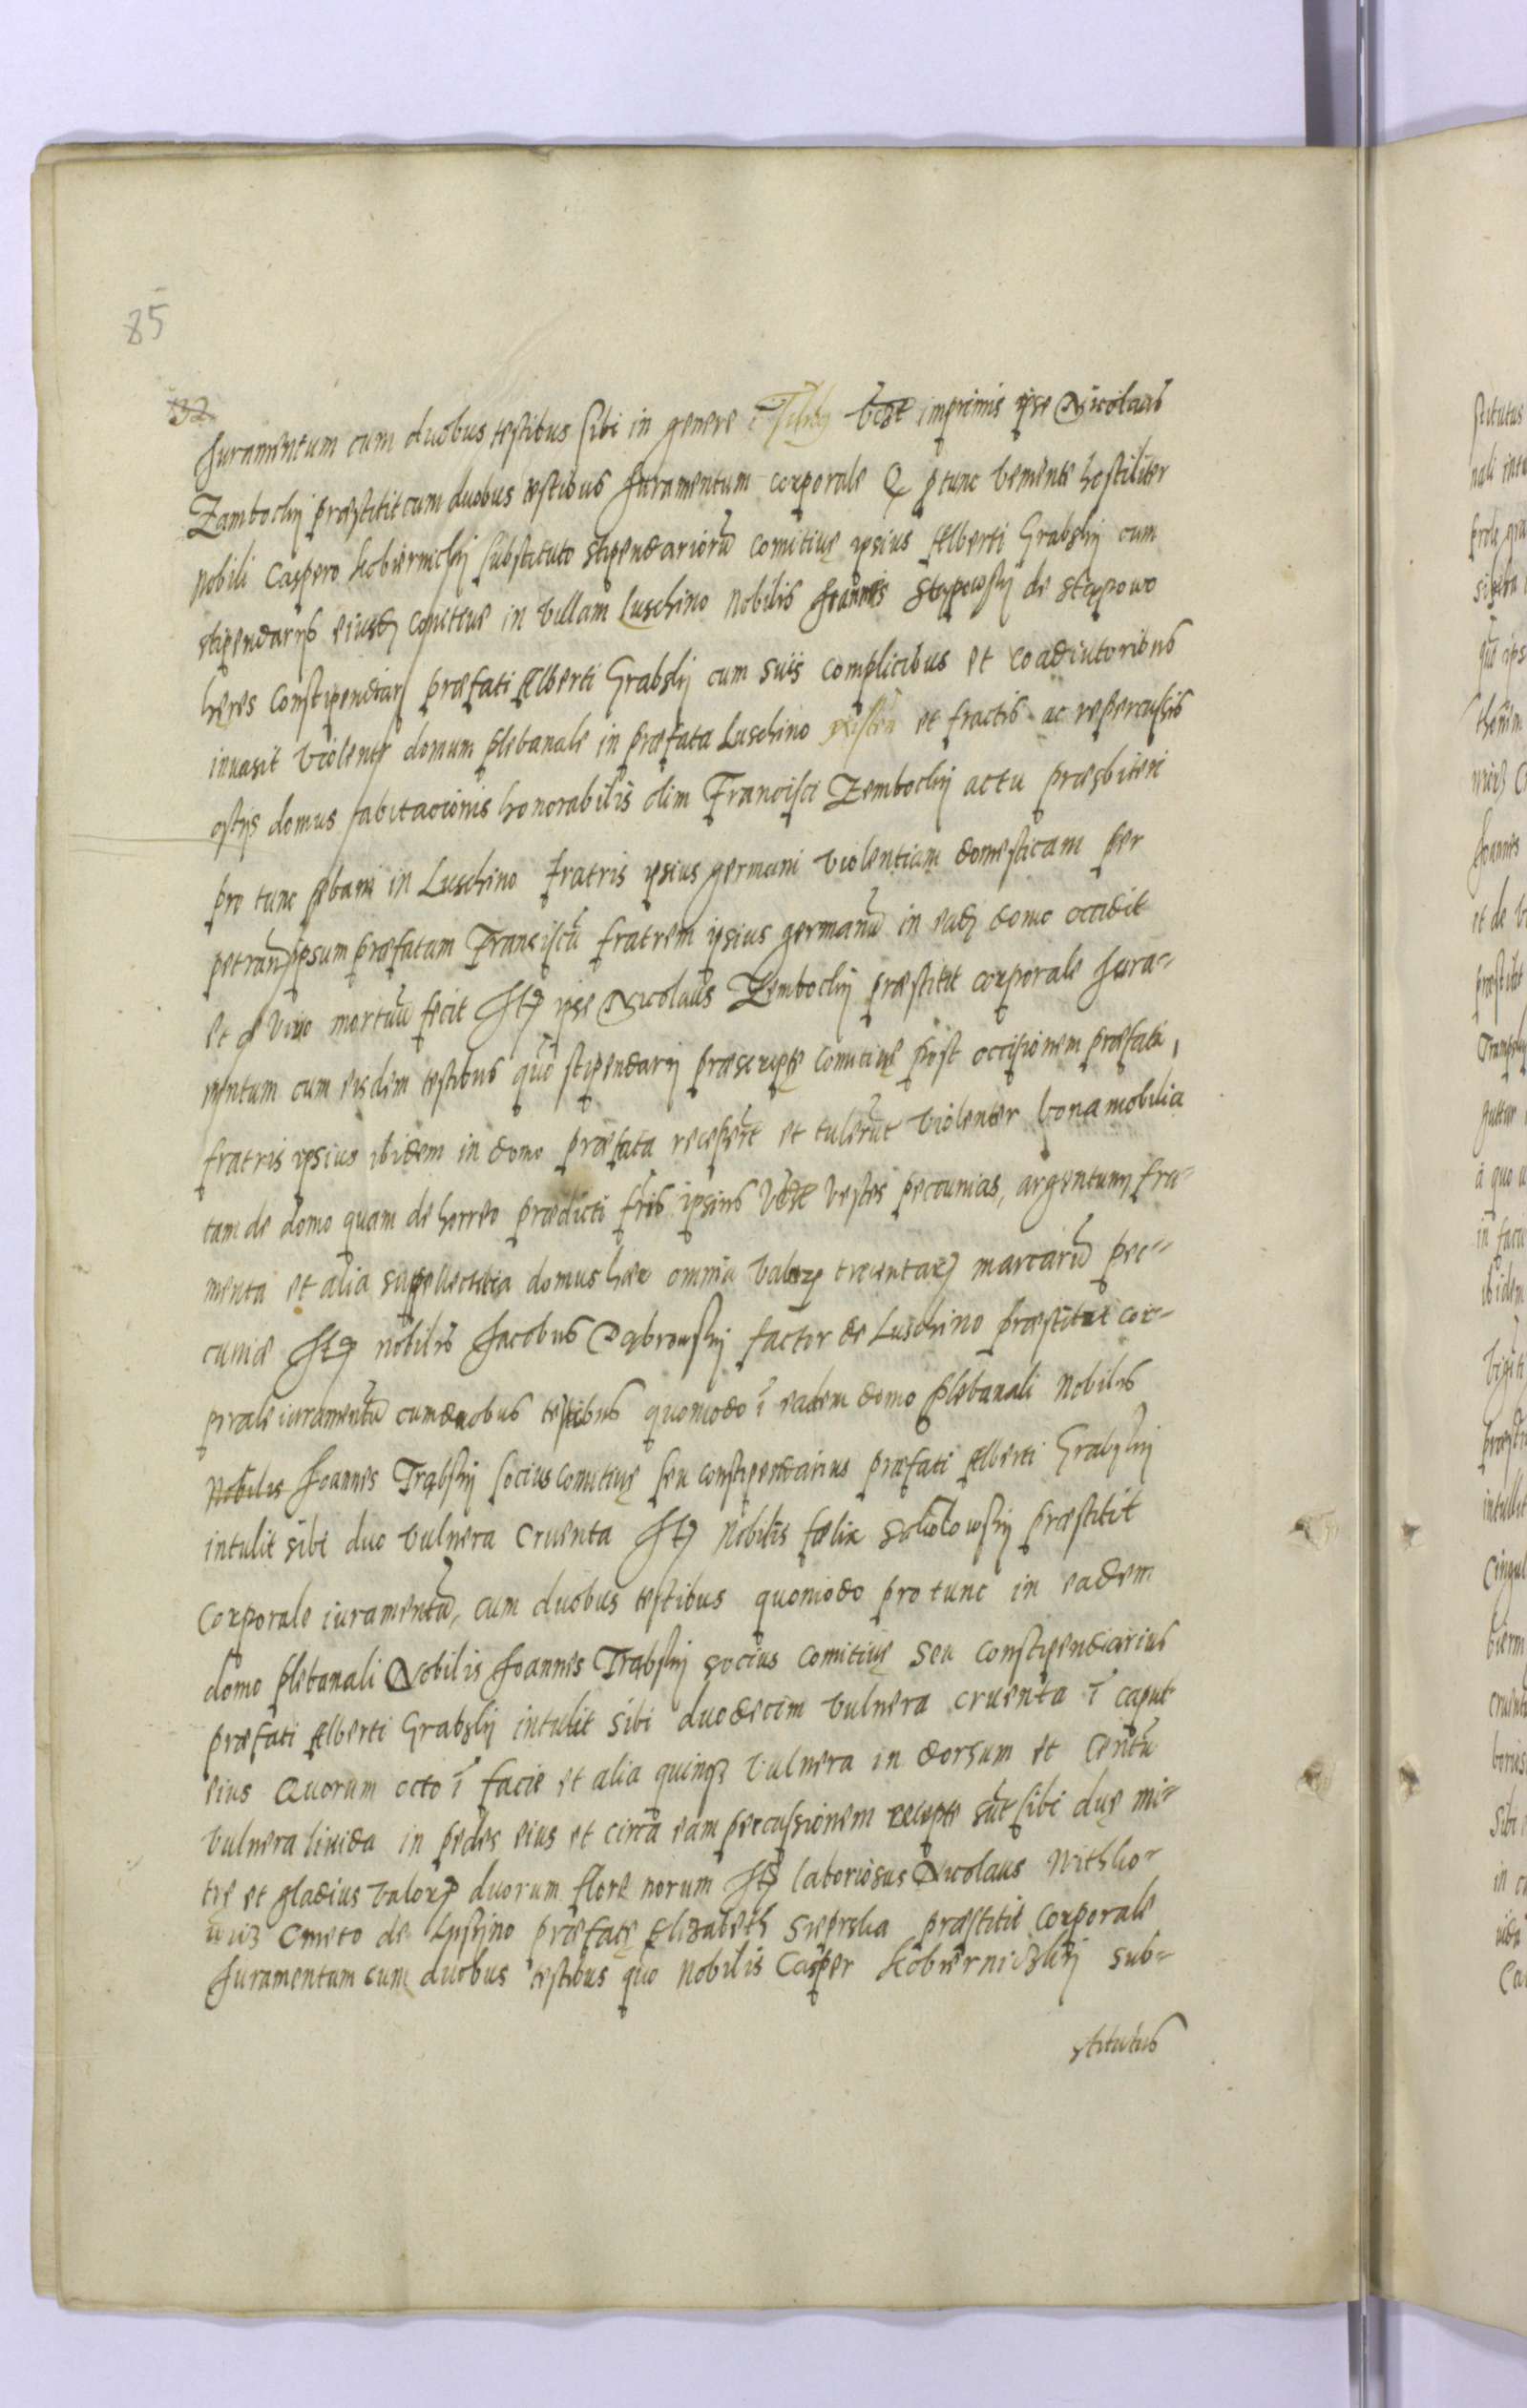 85
132
Juramentum cum duobus testibus sibi in genere ī vcꝫt imprimis ipse Nicolaus
Zambochÿ præstitit cum duobus testibus Juramentum corporale Q ptunc vemente hostiliter
Nobili Caspero Kobiernichÿ substituto stipendariorū comitiuę ipsius Alberti Grabskÿ cum
stipendarÿs eiusdꝫ comitiue in villam Luschino Nobilis Joannis Stępowskÿ de Stępowo
hęres Constipendiarÿ præfati Alberti Grabskÿ cum suis complicibus et coadiutoribus
inuasit violente domum plebanale in præfata Luschino et fractis ac repercussis
ostÿs domus habitacionis honorabilis olim Francisci Zembochÿ actu præsbiteri
pro tunc plebani in Luschino fratris ipsius germani violentiam domesticam per
petrań ipsum præfatam Franciscū fratrem ipsius germanū in eadꝫ domo occidit
et de viuo mortuū fecit Itꝫ ipse Nicolaus Zembochÿ præstitit corporale Jura-
mentum cum eisdem testibus quō stipendarii præscriptę comitiuę post occisionem præfati,
fratris ipsius ibidem in domo præfata recepērt et tulerūt violenter bona mobilia
tam de domo quam de horreo prædicti fr̄is ipsius vcꝫt vestes pecunias, argentum fra-
menta et alia supellectilia domus hæc omnia valorꝫ trecentarꝫ marcarū pec-
cuniæ Itꝫ nobilis Jacobus Dąbrowskÿ factor de Luschino præstitit cor-
porale iuramentū cum duobus testibus quomodo ī eadem domo plebanali Nobilis
Nobilis Joannes Trąbskÿ socius comitiuę seu constipendarius præfati Alberti Grabskÿ
intulit sibi duo vulnera cruenta Itꝫ Nobilis fælix Sokołowskÿ præstitit
Corporale iuramentū, cum duobus testibus quomodo pro tunc in eadem
domo plebanali Nobilis Joannes Trąbskÿ socius comitiuę seu constipendiarius
præfati Alberti Grabskÿ intulit sibi duodecim vulnera cruenta ī caput
eius Quorum octo ī facie et alia quinqꝫ vulnera in dorsum et Centū
vulnera liuida in pedes eius et circa eam percussionem recepte sūt sibi duę mi-
trę et gladius valorꝫ duorum florenorum Itꝫ laboriosus Nicolaus Withko-
wicz Cmeto de Lusÿno præfatę Elizabeth Sieprska præstitit Corporale
Juramentum cum duobus testibus quō Nobilis Casper Kobierniczkÿ sub-
stitutus